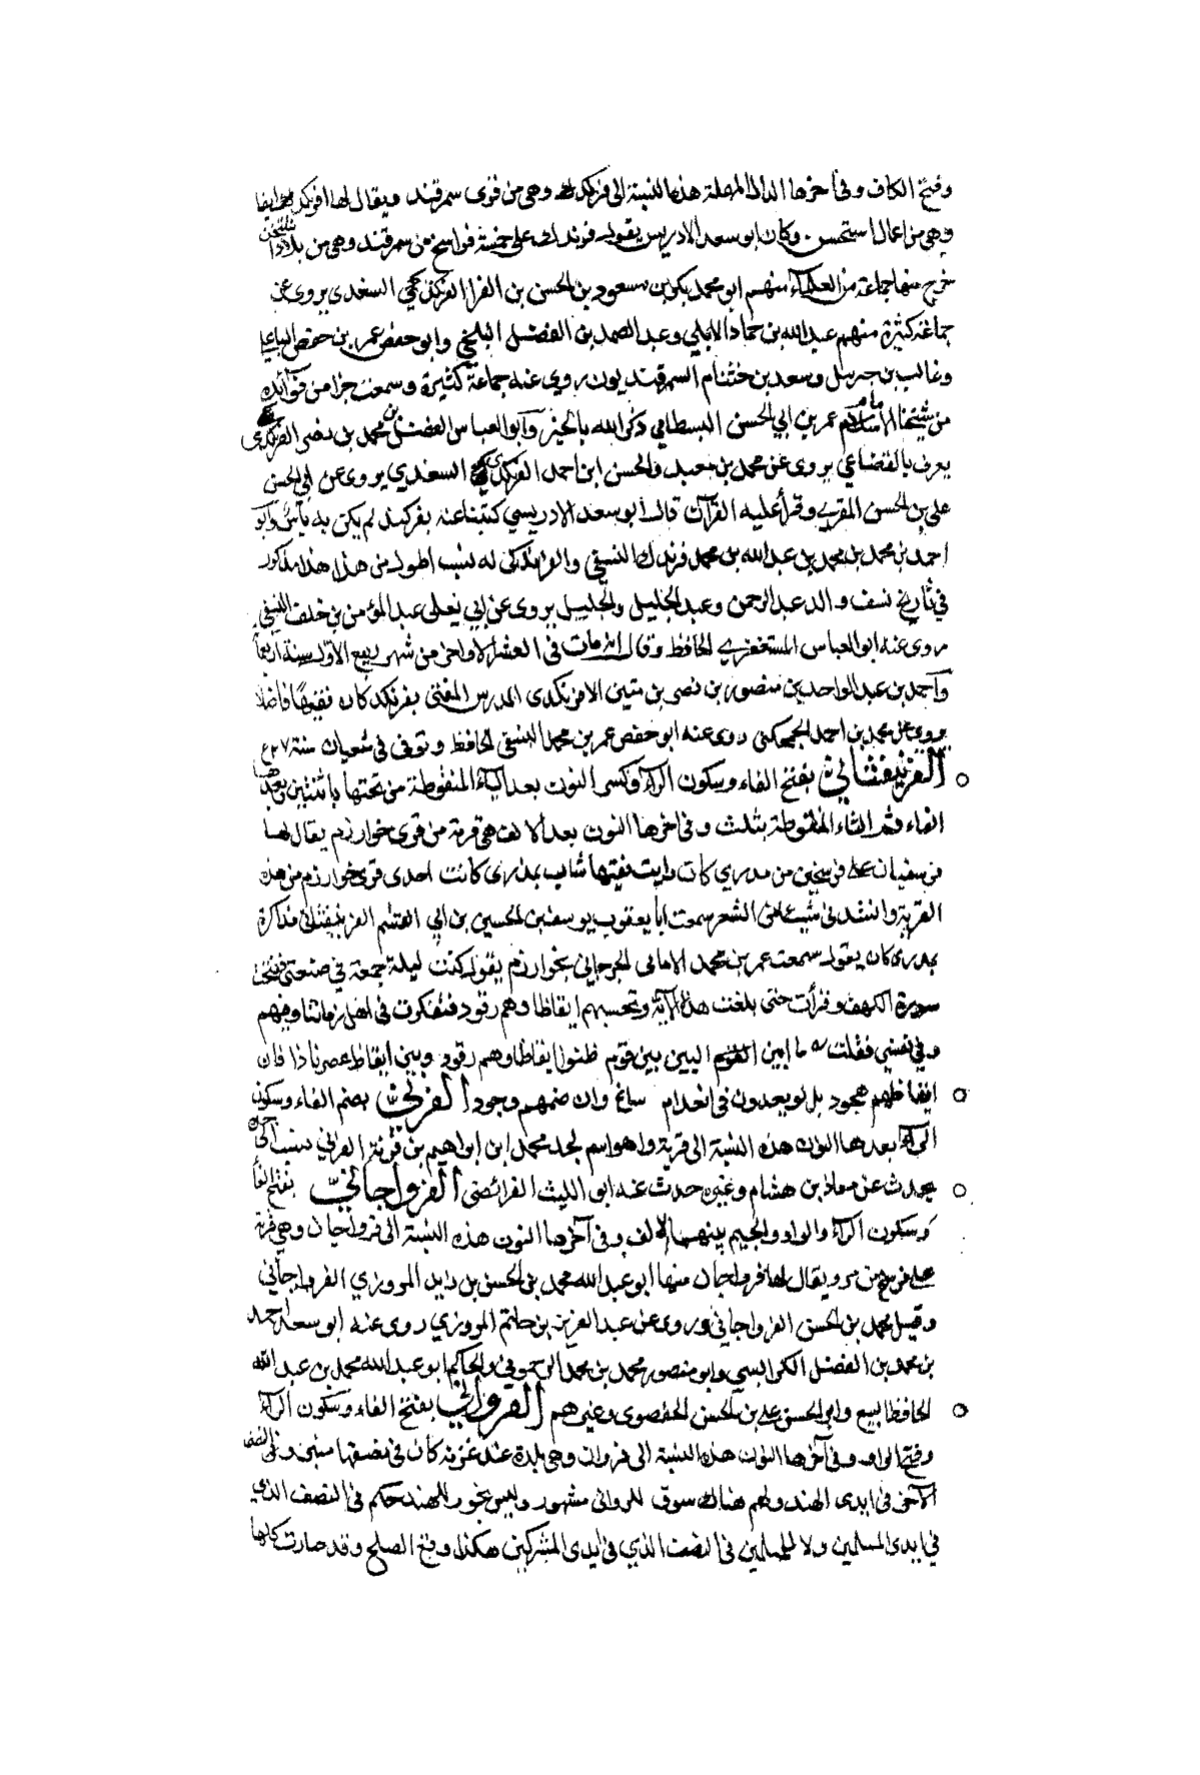 وفتح الكاف وفي آخرها الدال المهملة هذه النسبة الى فرنكد وهي من قرى سمرقند ويقال لها افرنكد ايضا
وهي من اعمال اشتيخن وكان ابو سعد الادريسي يقول فرنكد على خمسة فراسخ من سمرقند وهي من بلاد
خرج منها جماعة من العلماء منهم ابو محمد بكر بن مسعود بن الحسن بن الفرنكدي السغدي يروي عن
جماعة كثيرة منهم عبد الله بن حماد الآملي وعبد الصمد بن الفضل البلخي وابو حفص عمر بن حفص
وغالب بن جبرئيل وسعد بن خشنام السمرقنديون روى عنه جماعة كثيرة وسمعت جزا من فوائده
من شيخنا الامام عمر بن ابي الحسن البسطامي ذكره الله بالخير وابو العباس الفضل بن محمد بن نصر الفرنكدي
يعرف بالقضاعي يروي عن محمد بن معبد والحسن ابن احمد الفرنكدي السغدي يروي عن ابي الحسن
علي بن الحسن المقري وقرأ عليه القرآن قال ابو سعد الادريسي كتبنا عنه بفرنكد لم يكن به بأس وابو
احمد بن محمد بن محمد بن عبد الله بن محمد فرنكد النسفي والفرنكدي له نسب اطول من هذا هذا مذكور
في تاريخ نسف والد عبد الرحمن وعبد الجليل والجليل يروي عن ابي يعلى عبد المؤمن بن خلف النسفي
روى عنه ابو العباس المستغفري الحافظ وقال انه مات في العشر الاواخر من شهر ربيع الاول سنة
واحمد بن عبد الواحد بن منصور بن نصر بن متين الافرنكدي المدرس المفتي بفرنكد كان فقيها فاضلا
يروي عن محمد بن احمد روى عنه ابو حفص عمر بن محمد النسفي الحافظ وتوفي في شعبان سنة ٤٢٧
الفرنيفثاني بفتح الفاء وسكون الراء وكسر النون بعد الياء المنقوطة من تحتها باثنتين وبعدها
الفاء ثم الثاء المنقوطة بثلث وفي آخرها النون بعد الالف هي قرية من قرى خوارزم يقال لها
على فرسخين من مدري كان رايت فيها شاب احدى قرى خوارزم من هذه
القرية وانشدني شيئا من الشعر سمعت ابا يعقوب يوسف بن الحسين بن ابي القسم الفرنيفثاني مذاكرة
يقول سمعت عمر بن محمد الامامي الجرجاني بخوارزم يقول كنت ليلة جمعة في
سورة الكهف وقرأت حتى بلغت هذه الآية وتحسبهم ايقاظا وهم رقود فتفكرت في اهل زماننا وفيهم
وفي نفسي فقلت ما ابين البين بين قوم ظنوا ايقاظا وهم رقود وبين ايقاظ عصرنا ذا فان
ايقاظهم هجود بل لو يعدون في انعدام ساغ وان ضمهم وجود الفرني بضم الفاء وسكون
الراء بعدها النون هذه النسبة الى قرية واهو اسم لجد محمد ابن ابراهيم بن فرنة الفرني
يحدث عن معاذ بن هشام وغيره حدث عنه ابو الليث الفرائضي الفرواجاني بفتح الفاء
وسكون الراء والواو والجيم بينهما الالف وفي آخرها النون هذه النسبة الى فرواجان وهي قرية
على فرسخ من مرو ويقال لها فرواجان منها ابو عبد الله محمد بن الحسن بن المروزي الفرواجاني
وقيل محمد بن الحسن الفرواجاني وروى عن عبد العزيز بن حاتم المروزي روى عنه ابو سعد احمد
بن محمد بن الفضل الكرابيسي وابو منصور محمد بن محمد والحاكم ابو عبد الله محمد بن عبد الله
الحافظ البيع وابو الحسن علي بن الحسن الحفصوي وغيرهم الفرواني بفتح الفاء وسكون الراء
وفتح الواو وفي آخرها النون هذه النسبة الى فروان وهي بلدة عند غزنة كان في نصفها منبر وفي النصف
الآخر في ايدي الهند ولهم هناك سوق مشهور وليس يجوز للهند حكم في النصف الذي
في ايدي المسلمين ولا للمسلمين في النصف الذي في ايدي المشركين هكذا وقع الصلح وقد صارت كلها